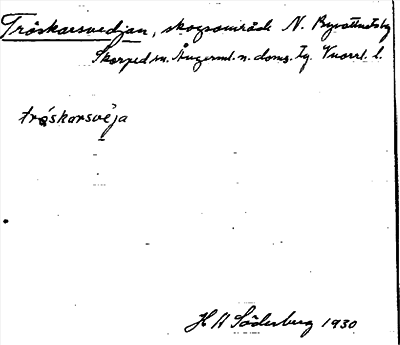 Tråskarsvedjan, skogsområde N. Byvattnet
Skorped sn. Ångerml. n. doms. Tg. Vnorrl. l.
tráskarsvèja
H H Söderberg 1930